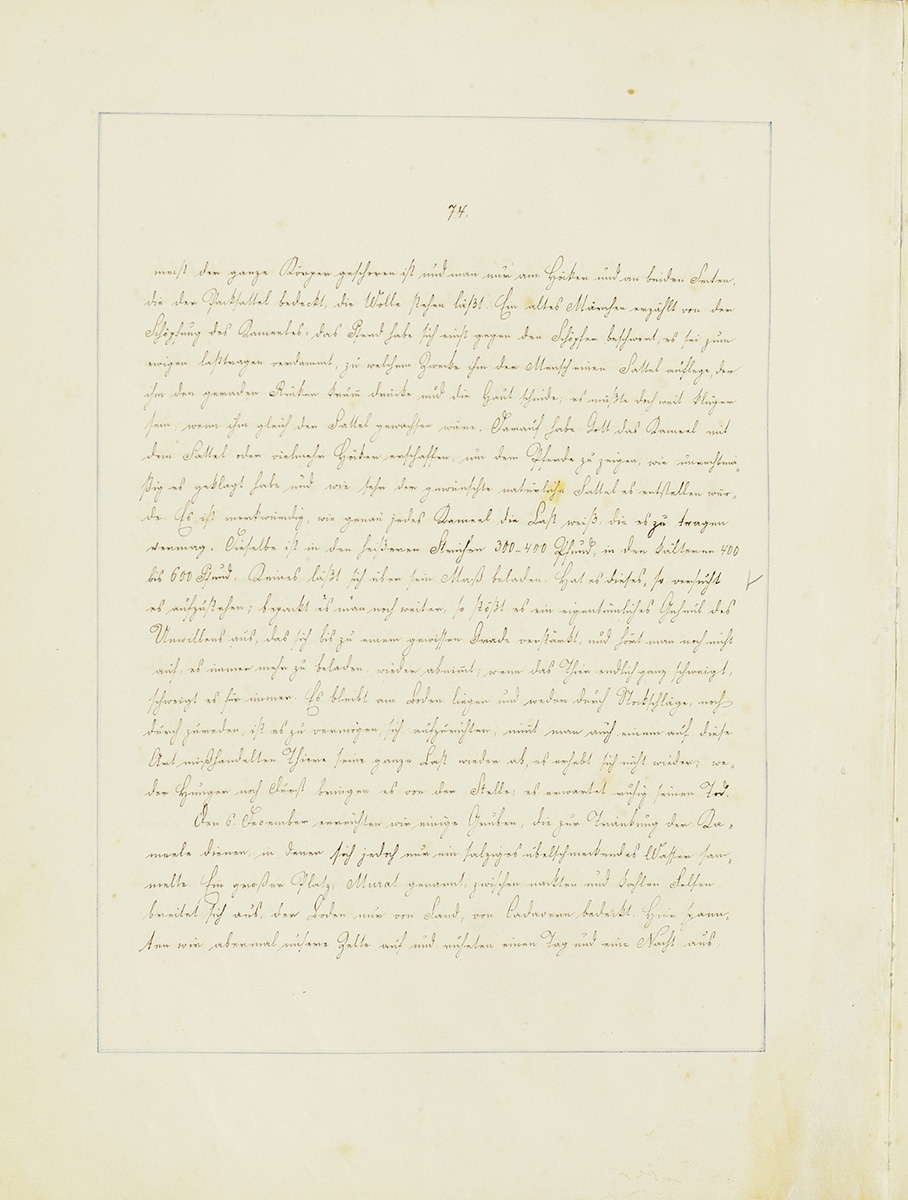 74.
meist der ganze Körper geschoren ist und man nur am Höcker und an beiden Seiten,
die der Packsattel bedeckt, die Wolle stehen läßt. Ein altes Märchen erzählt von der
Schöpfung des Kameeles: das Pferd habe sich einst gegen den Schöpfer beschwert, es sei zum
ewigen Lasttragen verdammt, zu welchem Zwecke ihm der Mensch einen Sattel auflege, der
ihm den geraden Rücken krum̅ drücke und die Haut schinde; es müßte doch weit klüger
sein, wenn ihm gleich der Sattel gewachsen wäre. Darauf habe Gott das Kameel mit
dem Sattel oder vielmehr Höcker erschaffen, um dem Pferde zu zeigen, wie unrechtmä-
ßig es geklagt habe und wie sehr der gewünschte natürliche Sattel es entstellen wür-
de. Es ist merkwürdig, wie genau jedes Kameel die Last weiß, die es zu tragen
vermag. Dieselbe ist in den heißeren Strichen 300-400 Pfund, in den kälteren 400
bis 600 Pfund. Keines läßt sich über sein Maß beladen. Hat es dieses, so versucht
es aufzustehen; bepackt es man noch weiter, so stößt es ein eigentümliches Geheul des
Unwillens aus, das sich bis zu einem gewissen Grade verstärkt, und hört man noch nicht
auf, es immer mehr zu beladen, wieder abnim̅t; wenn das Thier endlich ganz schweigt,
schweigt es für immer. Es bleibt am Boden liegen und weder durch Stockschläge, noch
durch zureden, ist es zu vermögen, sich aufzurichten; nim̅t man auch einem auf diese
Art mißhandelten Thiere seine ganze Last wieder ab, es erhebt sich nicht wieder; we-
der Hunger noch Durst bringen es von der Stelle; es erwartet ruhig seinen Tod.
Den 6. December erreichten wir einige Gruben, die zur Tränkung der Ka-
meele dienen, in denen sich jedoch nur ein salziges übelschmeckendes Wasser sam-
melte. Ein großer Platz, Murat genannt, zwischen nackten und kahlen Felsen
breitet sich aus, der Boden nur von Sand, von Cadavern bedeckt. Hier spann-
ten wir abermal unsere Zelte auf und ruhten einen Tag und eine Nacht aus.